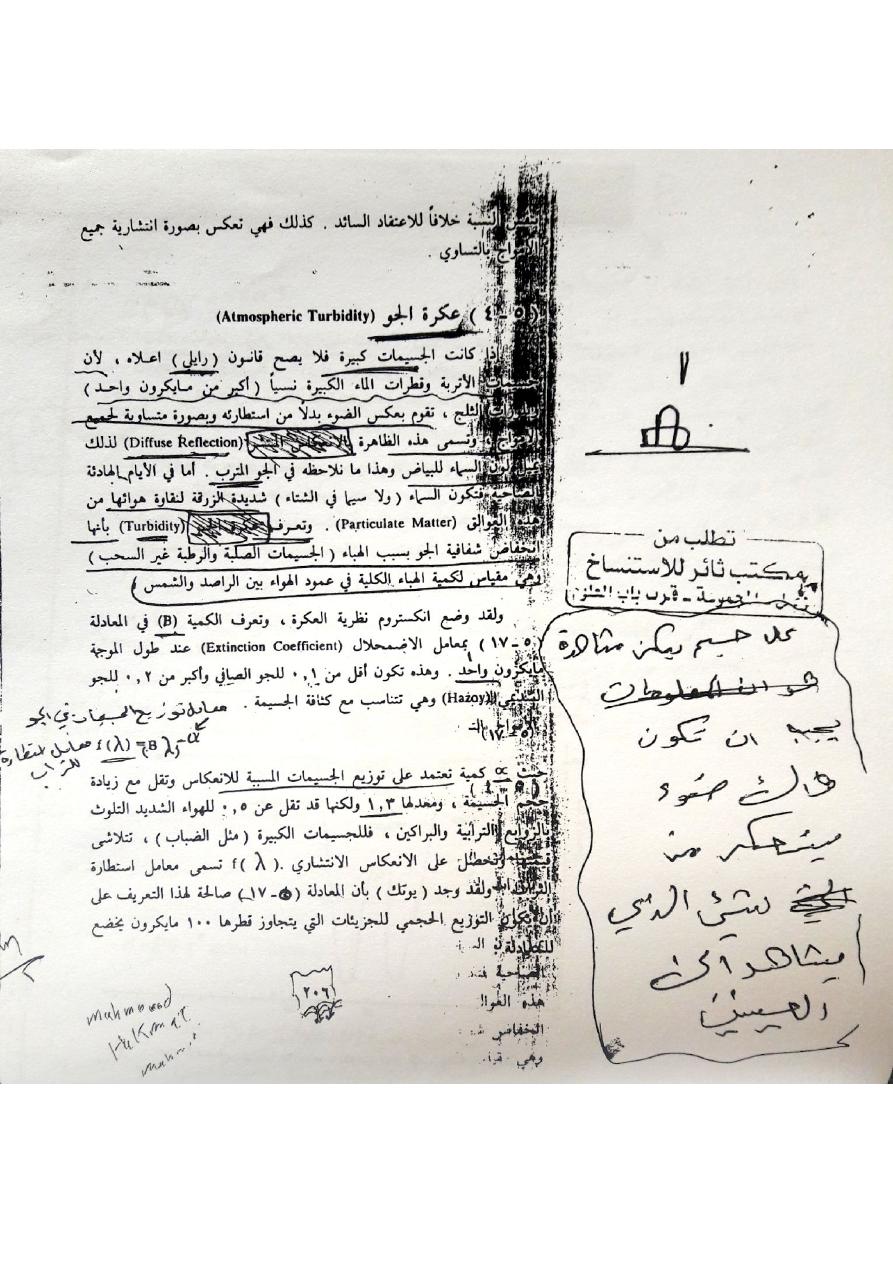 النسبة خلافاً للاعتقاد السائد . كذلك فهي تعكس بصورة انتشارية جميع
الأمواج بالتساوي .
(٥ - ٤) عكرة الجو (Atmospheric Turbidity)
إذا كانت الجسيمات كبيرة فلا يصح قانون (رايلي) اعلاه ، لأن
جسيمات الأتربة وقطرات الماء الكبيرة نسبياً (أكبر من مايكرون واحد)
وبلورات الثلج ، تقوم بعكس الضوء بدلاً من استطارته وبصورة متساوية لجميع
الامواج ، وتسمى هذه الظاهرة بالانعكاس المنتشر (Diffuse Reflection) لذلك
يميل لون السماء للبياض وهذا ما نلاحظه في الجو المترب . أما في الأيام الهادئة
الصاحية فتكون السماء (ولا سيما في الشتاء) شديدة الزرقة لنقاوة هوائها من
هذه العوالق (Particulate Matter) . وتعرف عكرة الجو (Turbidity) بأنها
انخفاض شفافية الجو بسبب الهباء (الجسيمات الصلبة والرطبة غير السحب)
وهي مقياس لكمية الهباء الكلية في عمود الهواء بين الراصد والشمس
ولقد وضع انكستروم نظرية العكرة ، وتعرف الكمية (B) في المعادلة
(٥ - ١٧) بمعامل الاضمحلال (Extinction Coefficient) عند طول الموجة
مايكرون واحد . وهذه تكون أقل من ٠,١ للجو الصافي وأكبر من ٠,٢ للجو
السديمي (Hazoy) وهي تتناسب مع كثافة الجسيمة .
معامل توزيع الجسيمات في الجو
f(λ) = B λ^-α
معامل استطارة
للتراب
(٥ - ١٧)
حيث α كمية تعتمد على توزيع الجسيمات المسببة للانعكاس وتقل مع زيادة
حجم الجسيمة ، ومعدلها ١,٣ ولكنها قد تقل عن ٠,٥ للهواء الشديد التلوث
بالزوابع الترابية والبراكين ، فللجسيمات الكبيرة (مثل الضباب) ، تتلاشى
قيمتها ونحصل على الانعكاس الانتشاري . f(λ) تسمى معامل استطارة
ولقد وجد (يوتك) بأن المعادلة (٥ - ١٧) صالحة لهذا التعريف على
أن يكون التوزيع الحجمي للجزيئات التي يتجاوز قطرها ١٠٠ مايكرون يخضع
للمعادلة
٢٠٦
الصاحية
هذه العوال
انخفاض
وهي
Mahmood
HeKmat
تطلب من
مكتب ثائر للاستنساخ
قرب باب
كل جسم يمكن مشاهدة
يجب ان تكون
هناك ضوء
ينعكس من
الشيء الذي
يشاهد الى
العينين